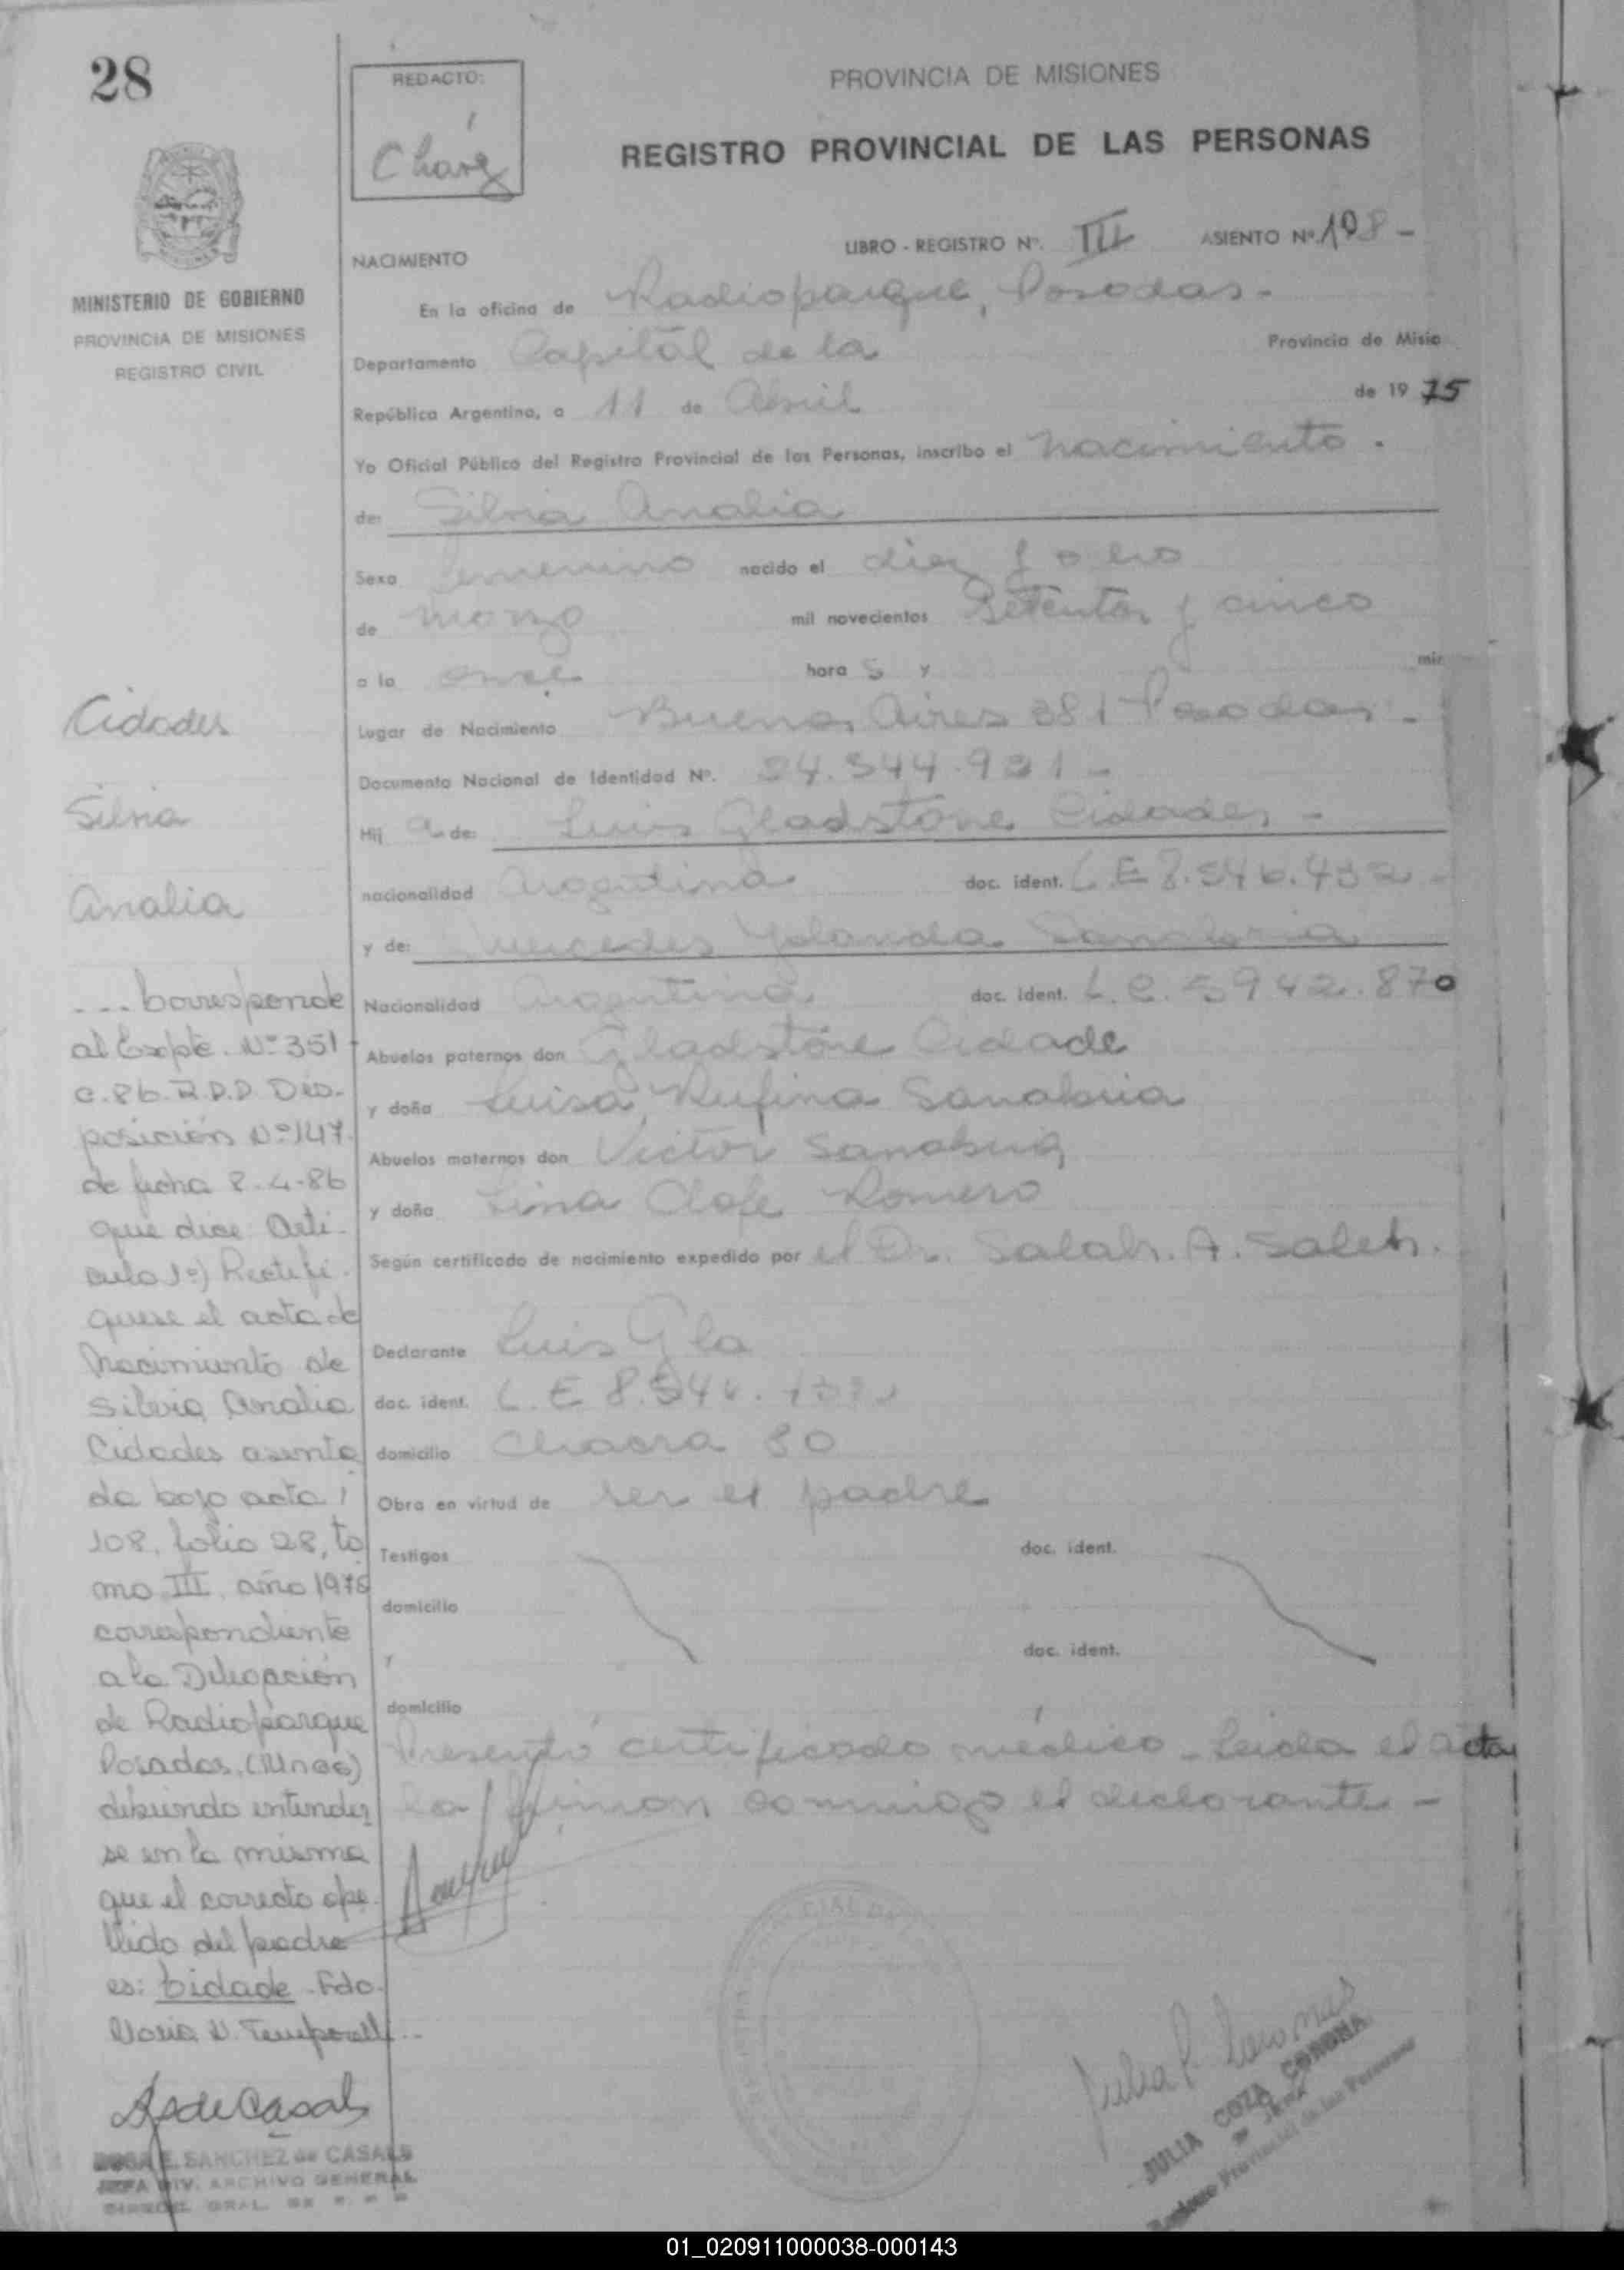 28
REDACTO:
Chavez
PROVINCIA DE MISIONES
REGISTRO PROVINCIAL DE LAS PERSONAS
LIBRO - REGISTRO Nº. III ASIENTO Nº 108 -
NACIMIENTO
MINISTERIO DE GOBIERNO
PROVINCIA DE MISIONES
REGISTRO CIVIL
En la oficina de Radioparque, Posadas -
Departamento Capital de la Provincia de Misio
República Argentina, a 11 de Abril de 1975
Yo Oficial Público del Registro Provincial de las Personas, inscribo el nacimiento .
de: Silvia Analia
Sexo femenino nacido el diez y ocho
de marzo mil novecientos setenta y cinco
a la once hora s y min
Lugar de Nacimiento Buenos Aires 381 Posadas -
Documento Nacional de Identidad Nº. 24.544.931 -
Hij a de: Luis Gladstone Cidades -
nacionalidad Argentina doc. ident. L.E 8.546.432 -
y de: Mercedes Yolanda Sanabria
Nacionalidad Argentina doc. ident. L.C. 5942.870
Abuelos paternos don Gladstone Cidade
y doña Luisa Rufina Sanabria
Abuelos maternos don Victor Sanabria
y doña Lina Clofe Romero
Según certificado de nacimiento expedido por el Dr. Salah. A. Saleh.
Declarante Luis Gla
doc. ident. L.E 8.546.
domicilio Chacra 80
Obra en virtud de ser el padre
Testigos doc. ident.
domicilio
y doc. ident.
domicilio
Presentó certificado médico - Leida el acta
la firman conmigo el declarante -
Cidades
Silvia
Analia
... Corresponde
al Expte. Nº 351
C. 86. R.P.P. Dis-
posición Nº 147
de fecha 8-4-86
que dice Arti-
culo 1º) Rectifi-
quese el acta de
Nacimiento de
Silvia Analia
Cidades asenta
da bajo acta
108, folio 28, to
mo III año 1975
correspondiente
a la Delegación
de Radioparque
Posadas, (Mnes)
debiendo entender
se en la misma
que el correcto ape-
llido del padre
es: Cidade - Fdo.
Maria N. Temporall...
SANCHEZ de CASALS
JEFA DIV. ARCHIVO GENERAL
GRAL.
JULIA COZA CORONA
JEFA
Registro Provincial de las Personas
01_020911000038-000143